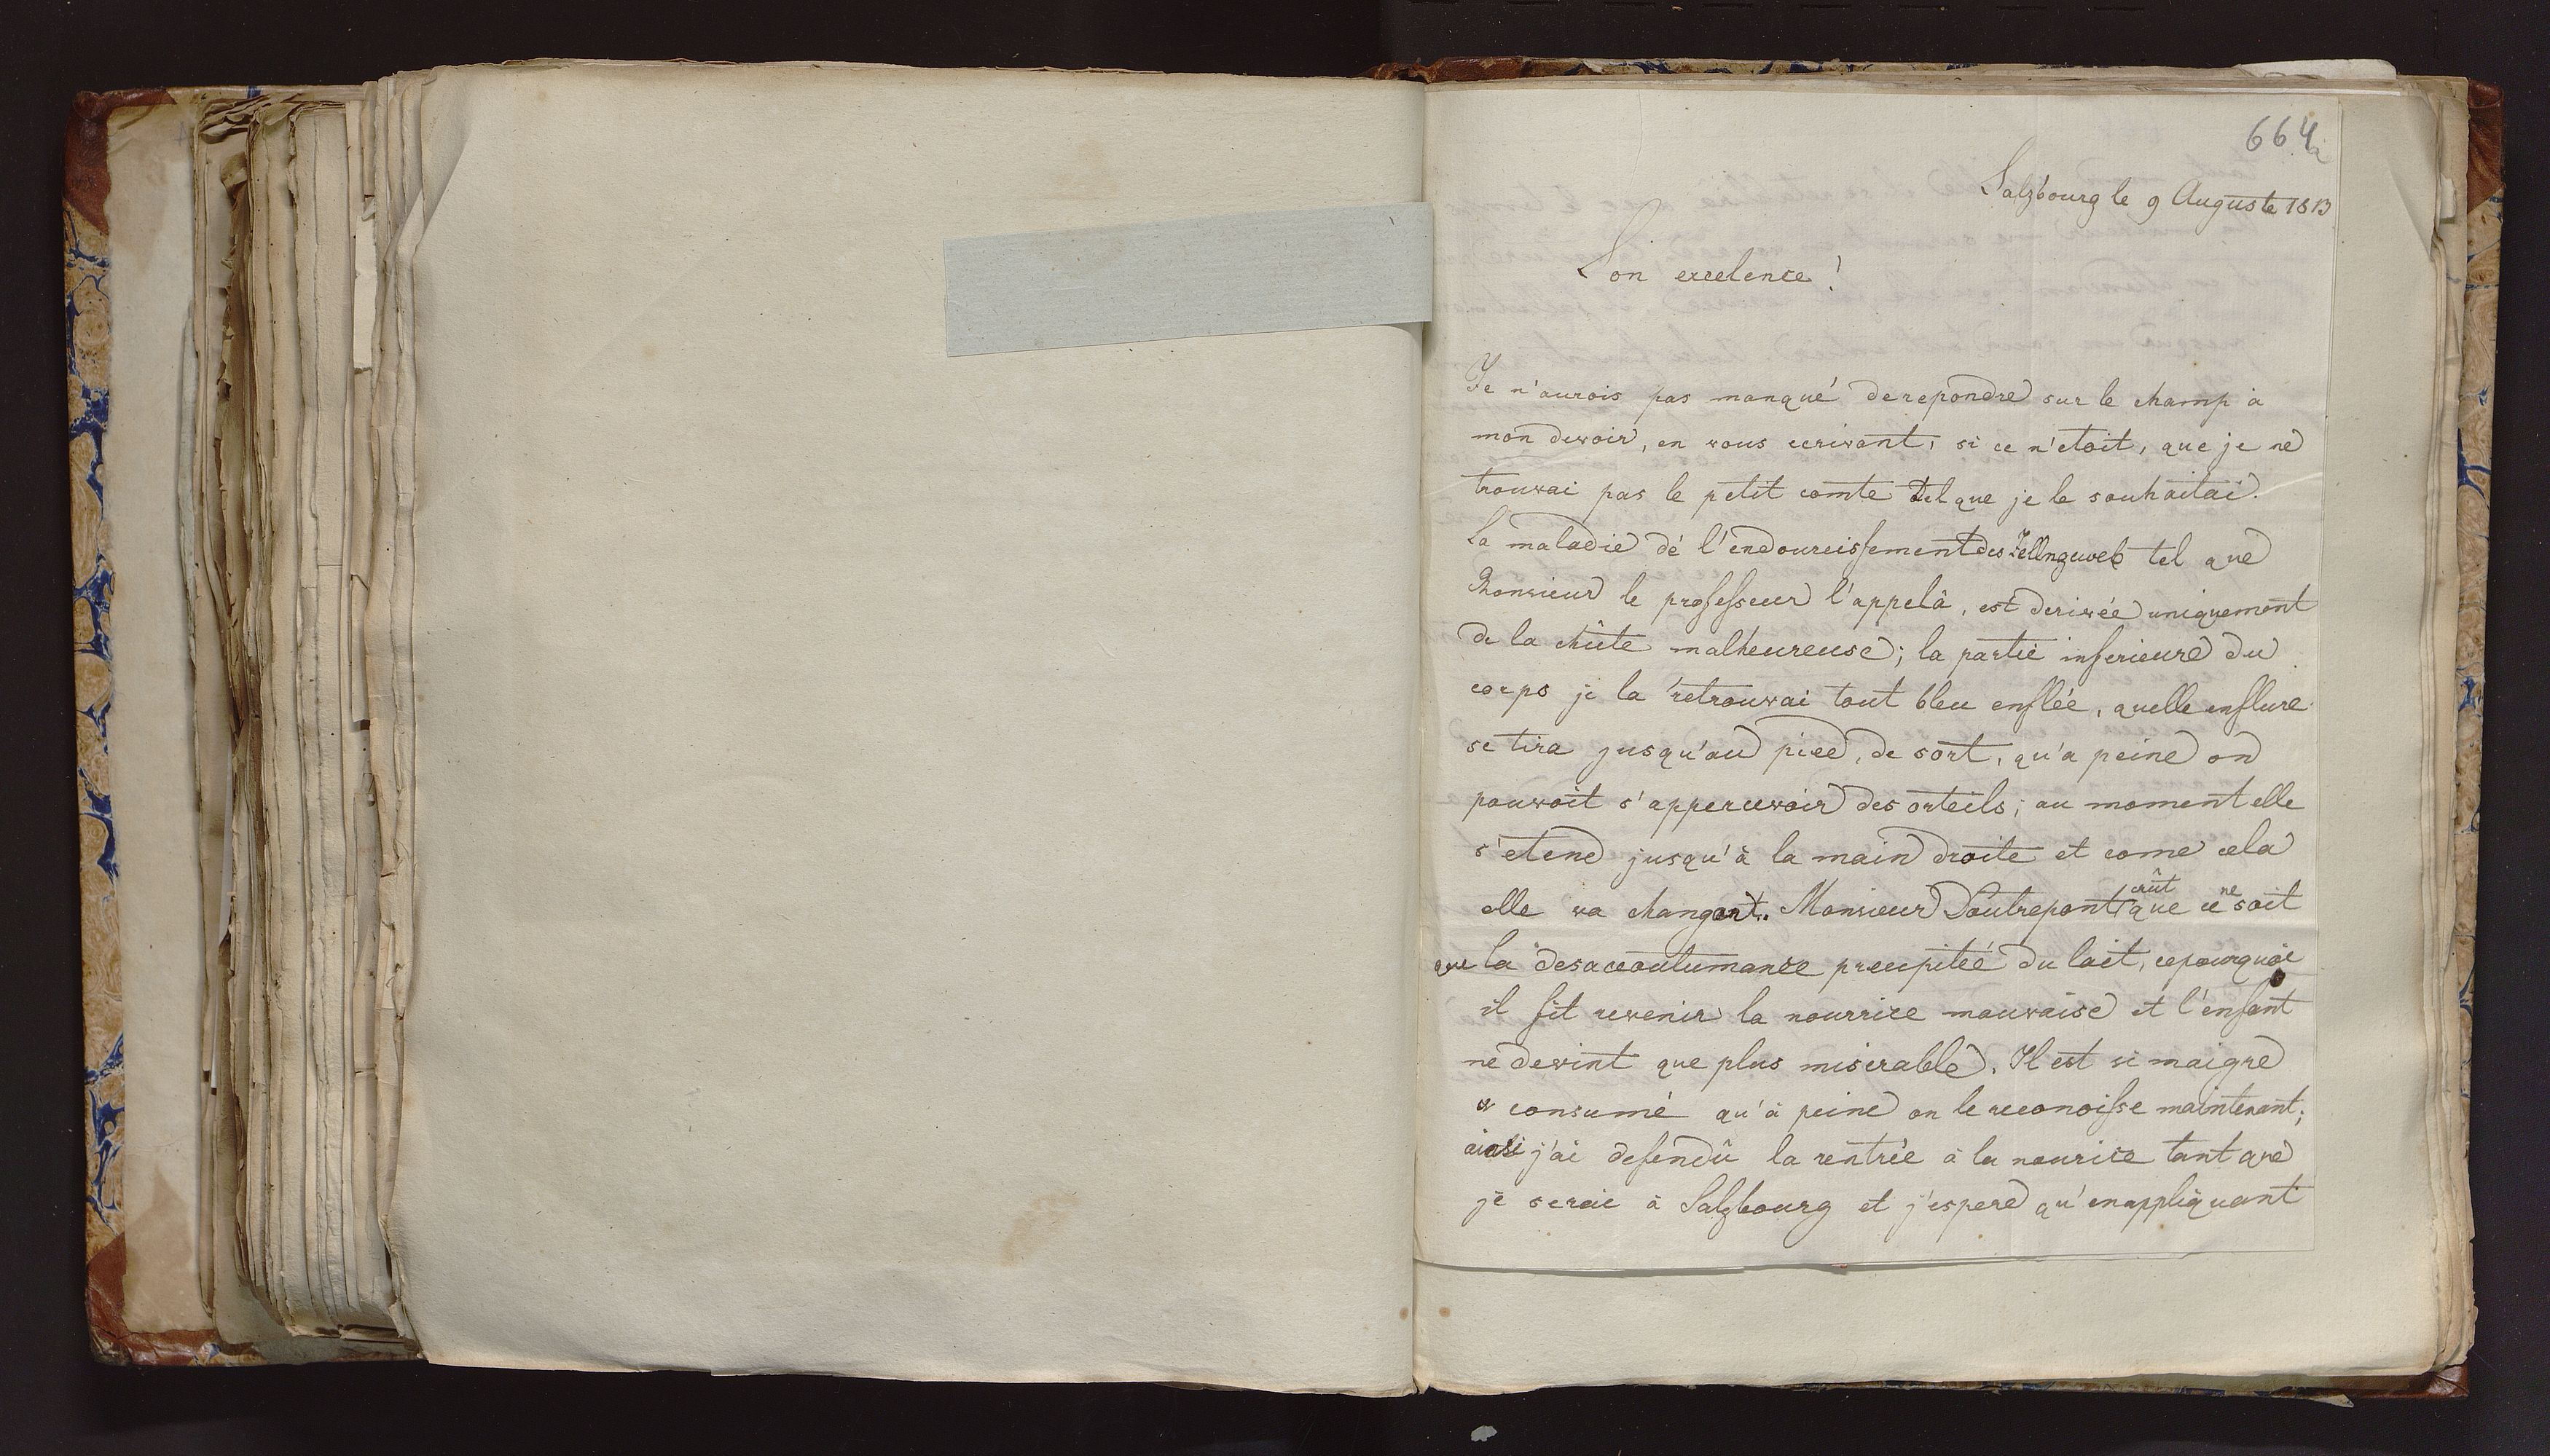 664a
Salzbourg le 9 Auguste 1813
Son excelence!
Je n'aurois pas manqué de repondre sur le champ à
mon devoir, en vous ecrivant, si ce n'etoit, que je ne
trouvai pas le petit comte tel que je le souhaitai.
La maladie dé l'endourcissement des Zellngeweb tel que
Monsieur le professeur l'appelà, est derivée uniquement
de la chûte malheureuse; la partie inferieure du
corps je la retrouvai tout bleu enflée, quelle enflure
se tira jusqu'au pied, de sort, qu'a peine on
pouvoit s'appercevoir des orteils; au moment elle
s'etend jusqu'à la main droite et come cela
elle va changent. Monsieur Doutrepont crût que ce ne soit
que la desaccoutumance precipiteé du lait, cepourquoi
il fit revenir la nourrice mauvaise et l'enfant
ne devint que plus miserable. Il est si maigre
et consumé qu'à peine on le reconoisse maintenant;
ainsi j'ai defendû la rentrée à la nourice tant que
je serai à Salzbourg et j'espere qu'en appliquant